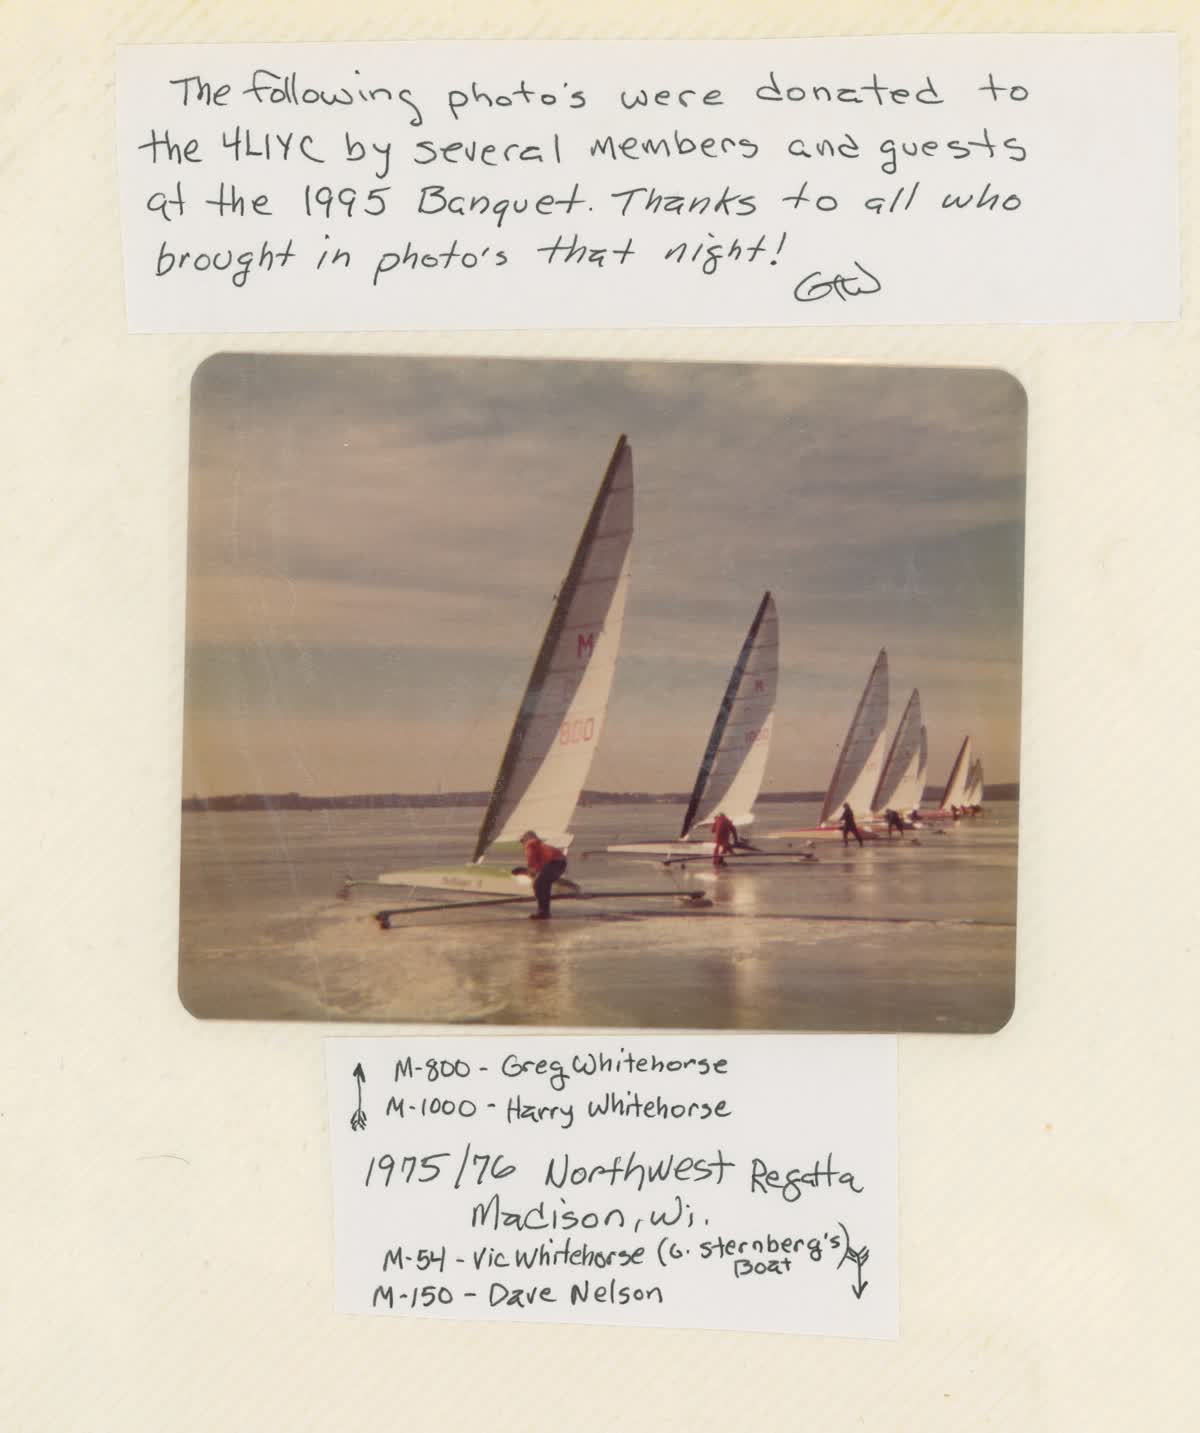 The following photo's were donated to
the 4LIYC by several members and guests
at the 1995 Banquet. Thanks to all who
brought in photo's that night!
GKW
M
800
M
1000
M-800 - Greg Whitehorse
M-1000 - Harry Whitehorse
1975/76 Northwest Regatta
Madison, Wi.
M-54 - Vic Whitehorse (G. Sternberg's)
Boat
M-150 - Dave Nelson